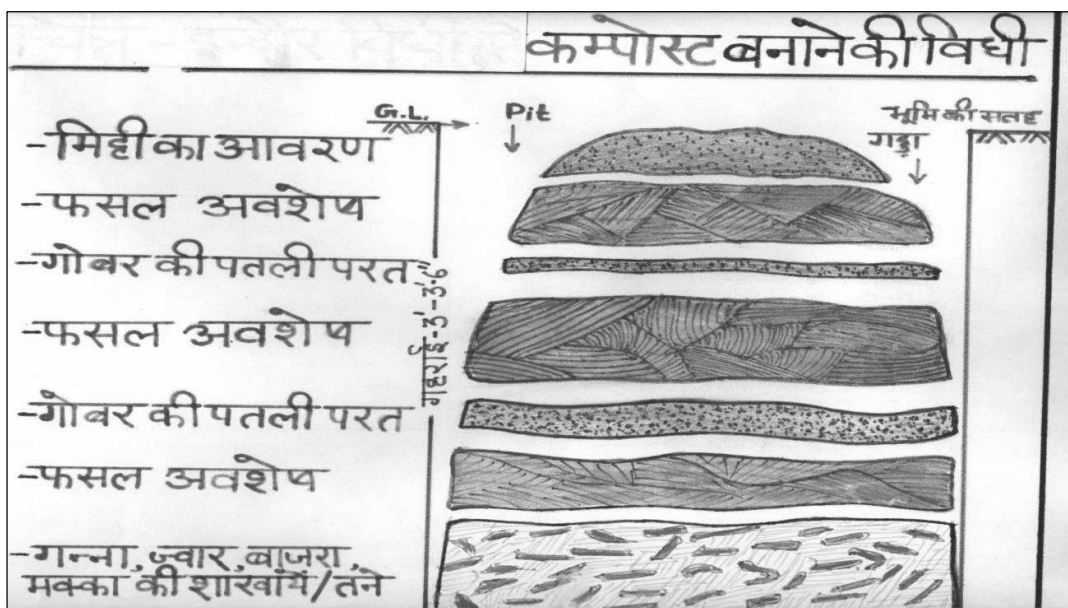 कम्पोस्ट बनाने की विधी
G.L.
Pit
भूमि की सतह
गड्ढा
-मिट्टी का आवरण
-फसल अवशेष
-गोबर की पतली परत
-फसल अवशेष
गहराई-3'-3'.6"
-गोबर की पतली परत
-फसल अवशेष
-गन्ना, ज्वार, बाजरा,
मक्का की शाखायें/तने